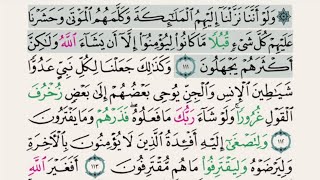 ۞ وَلَوْ أَنَّنَا نَزَّلْنَا إِلَيْهِمُ الْمَلَٰٓئِكَةَ وَكَلَّمَهُمُ الْمَوْتَىٰ وَحَشَرْنَا
عَلَيْهِمْ كُلَّ شَىْءٍ قُبُلًا مَّا كَانُوا۟ لِيُؤْمِنُوٓا۟ إِلَّآ أَن يَشَآءَ اللَّهُ وَلَٰكِنَّ
أَكْثَرَهُمْ يَجْهَلُونَ ١١١ وَكَذَٰلِكَ جَعَلْنَا لِكُلِّ نَبِىٍّ عَدُوًّا
شَيَٰطِينَ الْإِنسِ وَالْجِنِّ يُوحِى بَعْضُهُمْ إِلَىٰ بَعْضٍ زُخْرُفَ
الْقَوْلِ غُرُورًا وَلَوْ شَآءَ رَبُّكَ مَا فَعَلُوهُ فَذَرْهُمْ وَمَا يَفْتَرُونَ
١١٢ وَلِتَصْغَىٰٓ إِلَيْهِ أَفْـِٔدَةُ الَّذِينَ لَا يُؤْمِنُونَ بِالْـَٔاخِرَةِ
وَلِيَرْضَوْهُ وَلِيَقْتَرِفُوا۟ مَا هُم مُّقْتَرِفُونَ ١١٣ أَفَغَيْرَ اللَّهِ